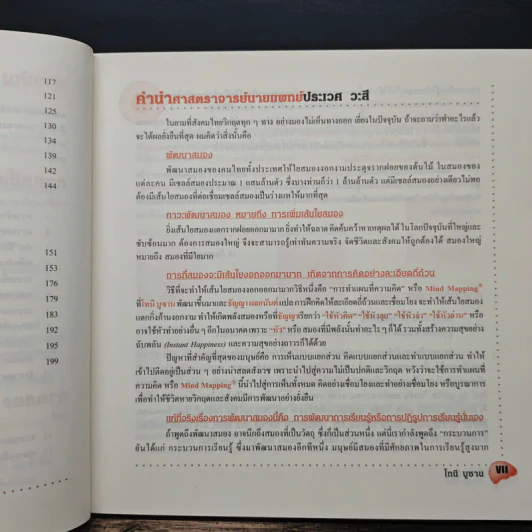 117
121
125
130
134
139
142
144
151
153
176
173
176
195
199
คำนำศาสตราจารย์นายแพทย์ประเวศ วะสี
ในยามที่สังคมไทยวิกฤตทุก ๆ ทาง อย่างมองไม่เห็นทางออก เยี่ยงในปัจจุบัน ถ้าจะถามว่าทำอะไรแล้ว
จะได้ผลยั่งยืนที่สุด ผมคิดว่าสิ่งนั้นคือ
พัฒนาสมอง
พัฒนาสมองของคนไทยทั้งประเทศให้ใยสมองงอกงามประดุจรากฝอยของต้นไม้ ในสมองของ
แต่ละคน มีเซลล์สมองประมาณ 1 แสนล้านตัว ซึ่งบางท่านก็ว่า 1 ล้านล้านตัว แต่มีเซลล์สมองอย่างเดียวไม่พอ
ต้องมีเส้นใยสมองที่ต่อเชื่อมเซลล์สมองเป็นร่างแหให้มากที่สุด
ภาวะพัฒนาสมอง หมายถึง การเพิ่มเส้นใยสมอง
ยิ่งเส้นใยสมองแตกรากฝอยออกมามาก ยิ่งทำให้ฉลาด คิดค้นคว้าหาเหตุผลได้ ในโลกปัจจุบันที่ใหญ่และ
ซับซ้อนมาก ต้องการสมองใหญ่ จึงจะสามารถรู้เท่าทันความจริง จัดชีวิตและสังคมให้ถูกต้องได้ สมองใหญ่
หมายถึง สมองที่มีใยมาก
การที่สมองจะมีเส้นใยงอกออกมามาก เกิดจากการคิดอย่างละเอียดถี่ถ้วน
วิธีที่จะทำให้เส้นใยสมองงอกออกมามากวิธีหนึ่งคือ “การทำแผนที่ความคิด” หรือ Mind Mapping®
ที่โทนี บูซาน พัฒนาขึ้นมาและธัญญา ผลอนันต์แปล การฝึกคิดให้ละเอียดถี่ถ้วนและเชื่อมโยง จะทำให้เส้นใยสมอง
แตกกิ่งก้านงอกงาม ทำให้เกิดพลังสมองหรือที่ธัญญาเรียกว่า “ใช้หัวคิด” “ใช้หัวลุย” “ใช้หัวจำ” “ใช้หัวอ่าน” หรือ
อาจใช้หัวทำอย่างอื่น ๆ อีกในอนาคต เพราะ “หัว” หรือ สมองที่มีพลังนั้นทำอะไร ๆ ก็ได้ รวมทั้งสร้างความสุขอย่าง
ฉับพลัน (Instant Happiness) และความสุขอย่างถาวรก็ได้ด้วย
ปัญหาที่สำคัญที่สุดของมนุษย์คือ การเห็นแบบแยกส่วน คิดแบบแยกส่วนและทำแบบแยกส่วน ทำให้
เข้าไปติดอยู่เป็นส่วน ๆ อย่างน่าสลดสังเวช เพราะนำไปสู่ความไม่เป็นปกติและวิกฤต หวังว่าจะใช้การทำแผนที่
ความคิด หรือ Mind Mapping® นี้นำไปสู่การเห็นทั้งหมด คิดอย่างเชื่อมโยงและทำอย่างเชื่อมโยง หรือบูรณาการ
เพื่อทำให้ชีวิตหายวิกฤตและสังคมมีการพัฒนาอย่างยั่งยืน
แท้ที่จริงเรื่องการพัฒนาสมองนี้คือ การพัฒนาการเรียนรู้หรือการปฏิรูปการเรียนรู้นั่นเอง
ถ้าพูดถึงพัฒนาสมอง อาจนึกถึงสมองที่เป็นวัตถุ ซึ่งก็เป็นส่วนหนึ่ง แต่นี่เรากำลังพูดถึง “กระบวนการ”
อันได้แก่ กระบวนการเรียนรู้ ซึ่งมาพัฒนาสมองอีกทีหนึ่ง มนุษย์มีสมองที่มีศักยภาพในการเรียนรู้สูงมาก
VII
โทนี บูซาน